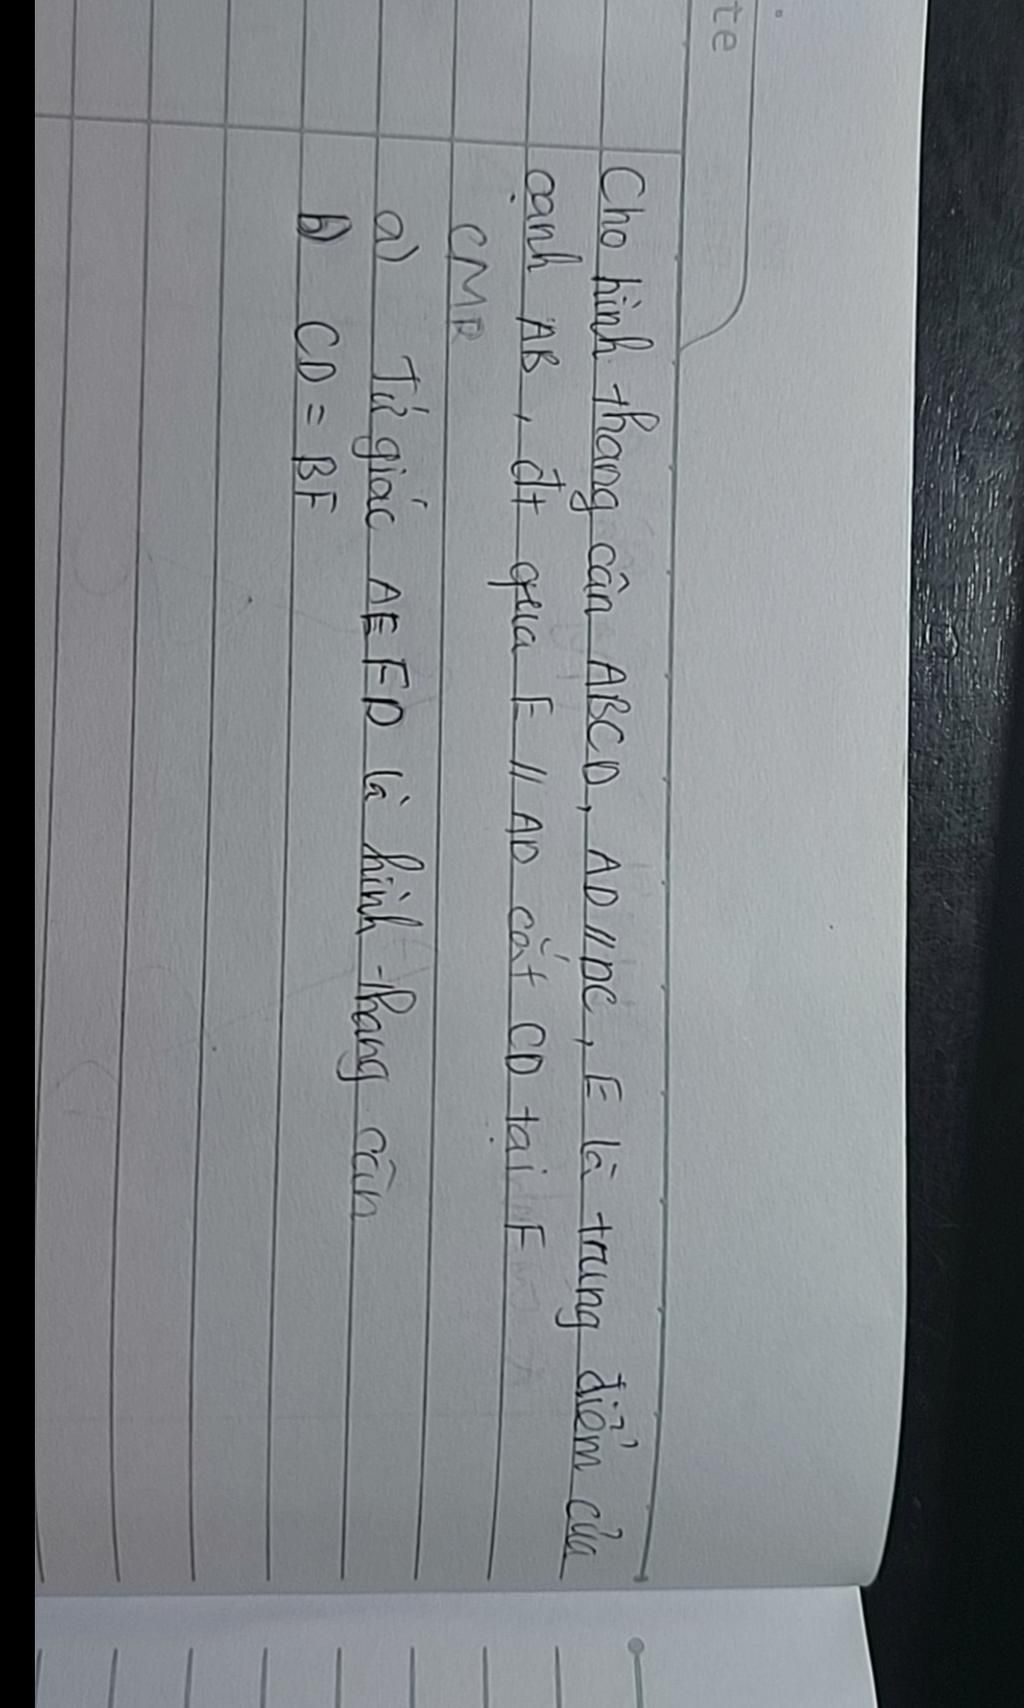 te
Cho hình thang cân ABCD, AD // DC, E là trung điểm của
cạnh AB, đt qua E // AD cắt CD tại F
CMR
a) Tứ giác AEFD là hình thang cân
b) CD = BF